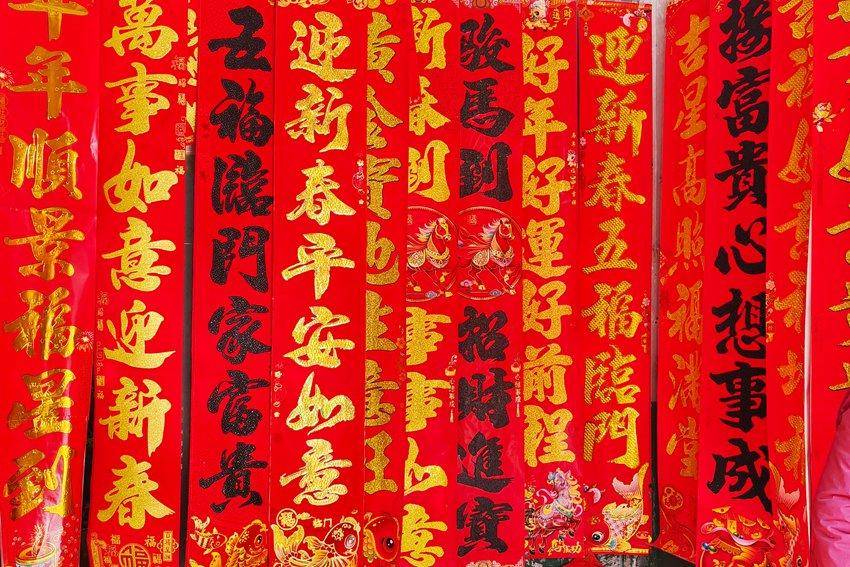 年年順景福星到
萬事如意迎新春
五福臨門家富貴
迎新春平安如意
黃金寶地生意旺
到事事如意
駿馬到招財進寶
好年好運好前程
迎新春五福臨門
吉星高照福滿堂
接富貴心想事成
如意